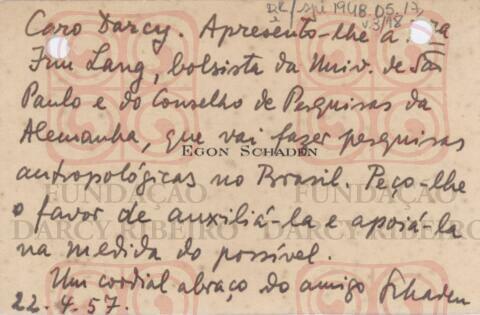 DR/spi 1948.05.17
v 3/98
Caro Darcy. Apresento-lhe a
Lang, bolsista da Univ. de São
Paulo e do Conselho de Pesquisas da
Alemanha, que vai fazer pesquisas
EGON SCHADEN
antropológicas no Brasil. Peço-lhe
o favor de auxiliá-la e apoiá-la
na medida do possível.
Um cordial abraço do amigo Schaden
22.4.57.
FUNDAÇÃO
DARCY RIBEIRO
FUNDAÇÃO
DARCY RIBEIRO